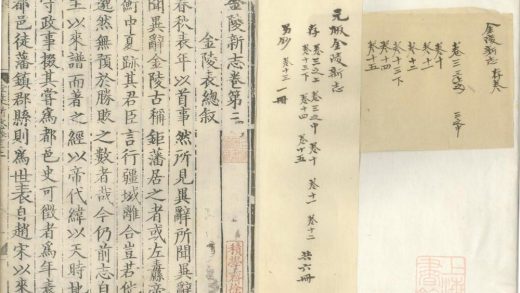 金陵新志 存卷
卷十
卷十一
卷十二
卷十三下
卷十四
卷十五
元板金陵新志
存 卷三之上 卷三之中 卷十 卷十一 卷十二
卷十三下 卷十四 卷十五 共六冊
另鈔 卷十三 一冊
金陵新志卷第三
金陵表總叙
春秋表年以首事然所見異辭所聞異辭
聞異辭金陵古稱鉅藩居之者或左纛帝
衡中夏跡其君臣言行疆域離合豈君他
邈然無預於勝敗之數者哉今仍前志自
主以來譜而著之經以帝代緯以天時地
守政事掇其嘗爲都邑史可徵者爲年表
都邑徒藩鎮郡縣則爲世表自趙宋以來